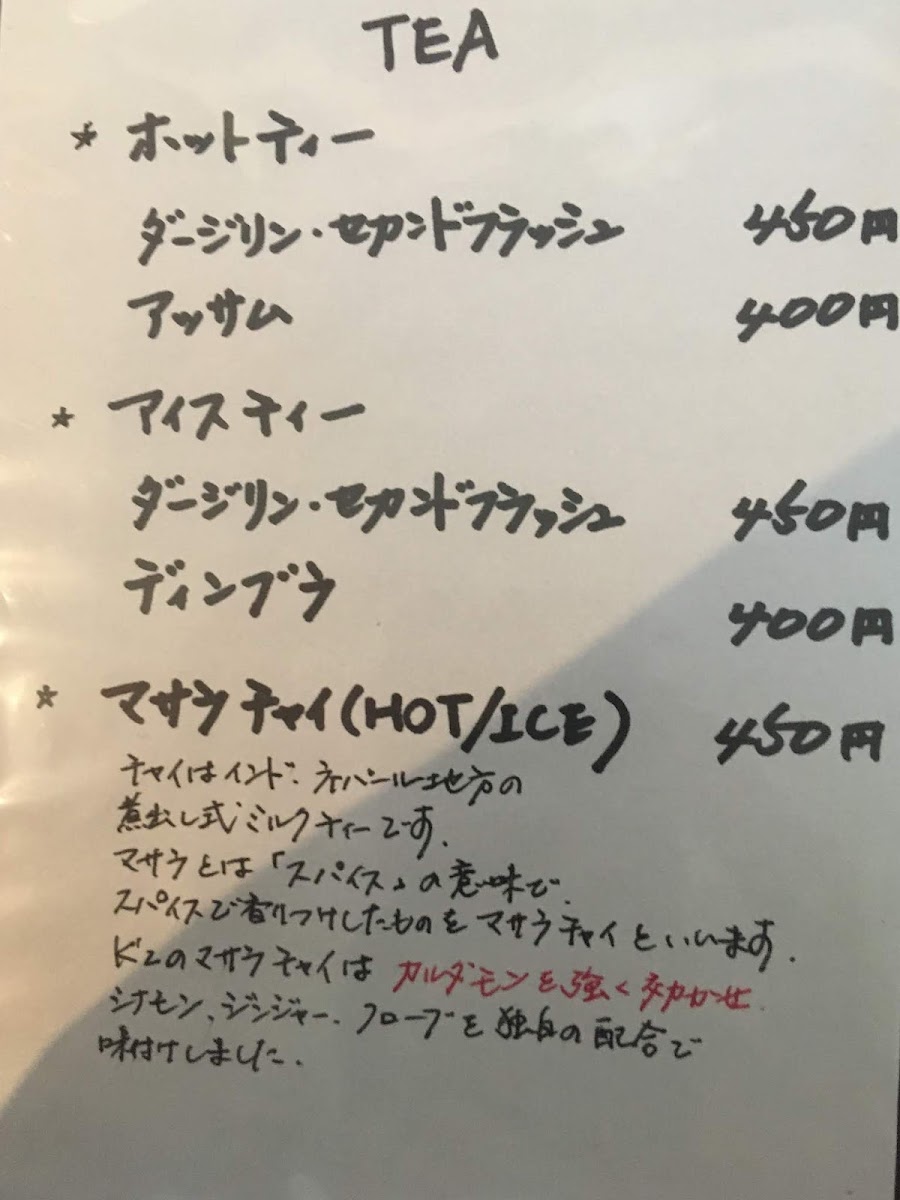 TEA
* ホットティー
ダージリン・セカンドフラッシュ 450円
アッサム 400円
* アイスティー
ダージリン・セカンドフラッシュ 450円
ディンブラ 400円
* マサラチャイ(HOT/ICE) 450円
チャイはインド、ネパール地方の
煮出し式ミルクティーです。
マサラとは「スパイス」の意味で、
スパイスで香りつけしたものをマサラチャイといいます。
K2のマサラチャイはカルダモンを強く効かせ、
シナモン、ジンジャー、クローブを独自の配合で
味付けしました。